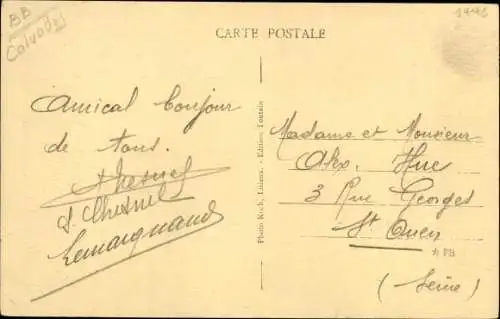 BB
Calvados
CARTE POSTALE
Amical bonjour
de tous.
Lemaignand
Photo Koch, Lisieux. - Edition Toutain
Madame et Monsieur
Alex. Huc
3 Rue Georges
St Ouen
* FB
(Seine)